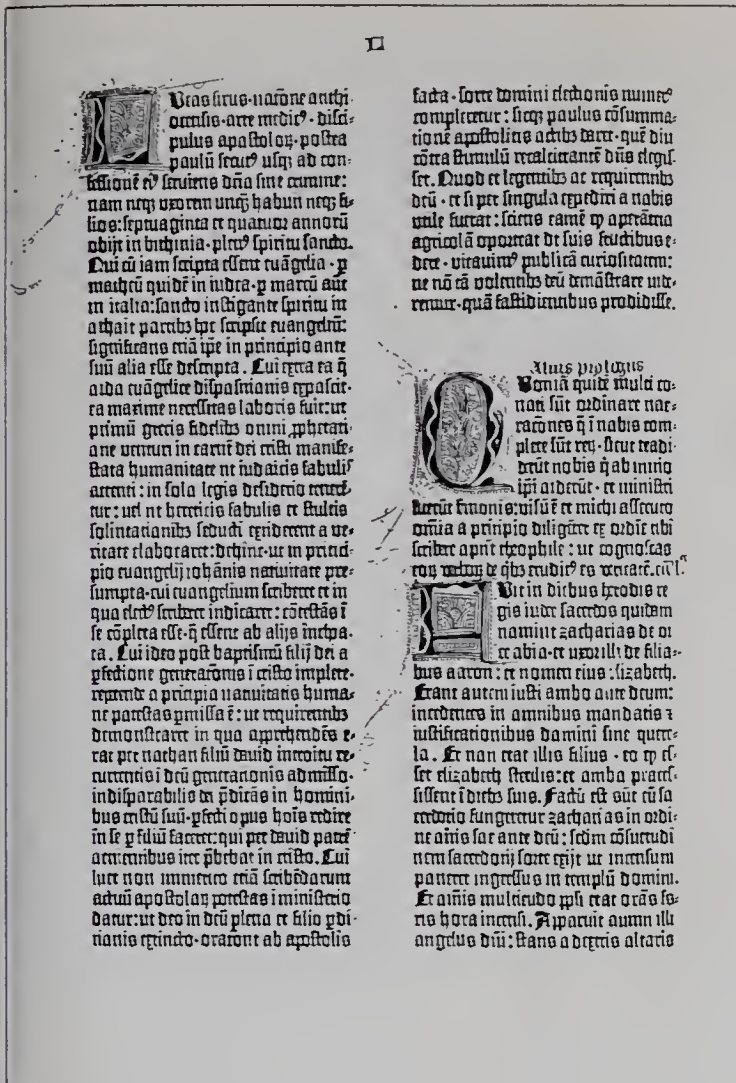 Lucas sirus·natione anthi-
ocensis·arte medicꝰ·disci-
pulus apostoloꝝ·postea
paulū secutꝰ usqꝫ ad con-
fessionē eiꝰ seruiens dn̄o sine crimine:
nam neqꝫ uxorem unqꝫ habuit neqꝫ fi-
lios: septuaginta et quatuor annorū
obijt in bithinia·plenꝰ spiritu sancto.
Qui cū iam scripta essent euāgelia·ꝑ
matheū quidē in iudea·ꝑ marcū aūt
in italia: sancto instigante spiritu in
achaie partibꝫ hoc scripsit euangeliū:
significans etiā ip̄e in principio ante
suū alia esse descripta. Cui extra ea q̄
ordo euāgelice dispositionis exposcit·
ea maxime necessitas laboris fuit: ut
primū grecis fidelibꝫ omni ꝓphetati-
one venturi in carnē dei cristi manife-
stata humanitate ne iudaicis fabulis
attenti: in solo legis desiderio tenerē-
tur: uel ne hereticis fabulis et stultis
solicitationibꝫ seducti exciderent a ve-
ritate elaboraret: dehinc·ut in princi-
pio euangelij iohānis natiuitate pre-
sumpta·cui euangelium scriberet et in
quo electꝰ scriberet indicaret: cōtestās ī
se cōpleta esse·q̄ essent ab alijs inchoa-
ta. Cui ideo post baptismū filij dei a
ꝑfectione generatōnis ī cristo implete·
repetende a principio natiuitatis huma-
ne potestas ꝑmissa ē: ut requirentibꝫ
demonstraret in quo apprehendēs e-
rat per nathan filiū dauid introitu re-
currentis ī deū generationis admisso·
indisparabilis dei p̄dicās in homini-
bus cristū suū·ꝑfecti opus hoīs redire
in se ꝑ filiū faceret: qui per dauid patrē
venientibus iter p̄bebat in cristo. Cui
luce non immerito etiā scribēdorum
actuū apostoloꝝ potestas ī ministerio
datur: ut deo in deū pleno et filio ꝑdi-
tionis extincto·oratione ab apostolis
facta·sorte domini electionis numerꝰ
compleretur: sicqꝫ paulus cōsumma-
tionē apostolicis actibꝫ daret·quē diu
cōtra stimulū recalcitrantē dn̄s elegis-
set. Quod et legentibꝫ ac requirentibꝫ
deū·et si per singula expediri a nobis
utile fuerat: sciens tamē ꝙ operātem
agricolā oporteat de suis fructibus e-
dere·vitauimꝰ publicā curiositatem:
ne nō tā volentibꝫ deū demōstrare vide-
remur·quā fastidientibus prodidisse.
Alius prologus
Quoniā quidē multi co-
nati sūt ordinare nar-
rationes q̄ ī nobis com-
plete sūt reꝝ·sicut tradi-
derūt nobis q̄ ab inicio
ip̄i viderūt·et ministri
fuerūt sermonis: visū ē et michi assecuto
omnia a principio diligēter ex ordīe tibi
scribere optīe theophile: ut cognoscas
eoꝝ verboꝝ de qͥbꝫ eruditꝰ es veritatē. ca. I.
Fuit in diebus herodis re-
gis iudee sacerdos quidam
nomine zacharias de vi-
ce abia·et uxor illi de filia-
bus aaron: et nomen eius elizabeth.
Erant autem iusti ambo ante deum:
incedentes in omnibus mandatis ⁊
iustificationibus domini sine quere-
la. Et non erat illis filius·eo ꝙ es-
set elizabeth sterilis: et ambo proces-
sissent ī diebꝫ suis. Factū est aūt cū sa-
cerdotio fungeretur zacharias in ordi-
ne vicis sue ante deū: scd̄m cōsuetudi-
nem sacerdotij sorte exijt ut incensum
poneret ingressus in templū domini.
Et om̄is multitudo ppl̄i erat orās fo-
ris hora incensi. Apparuit autem illi
angelus dn̄i: stans a dextris altaris